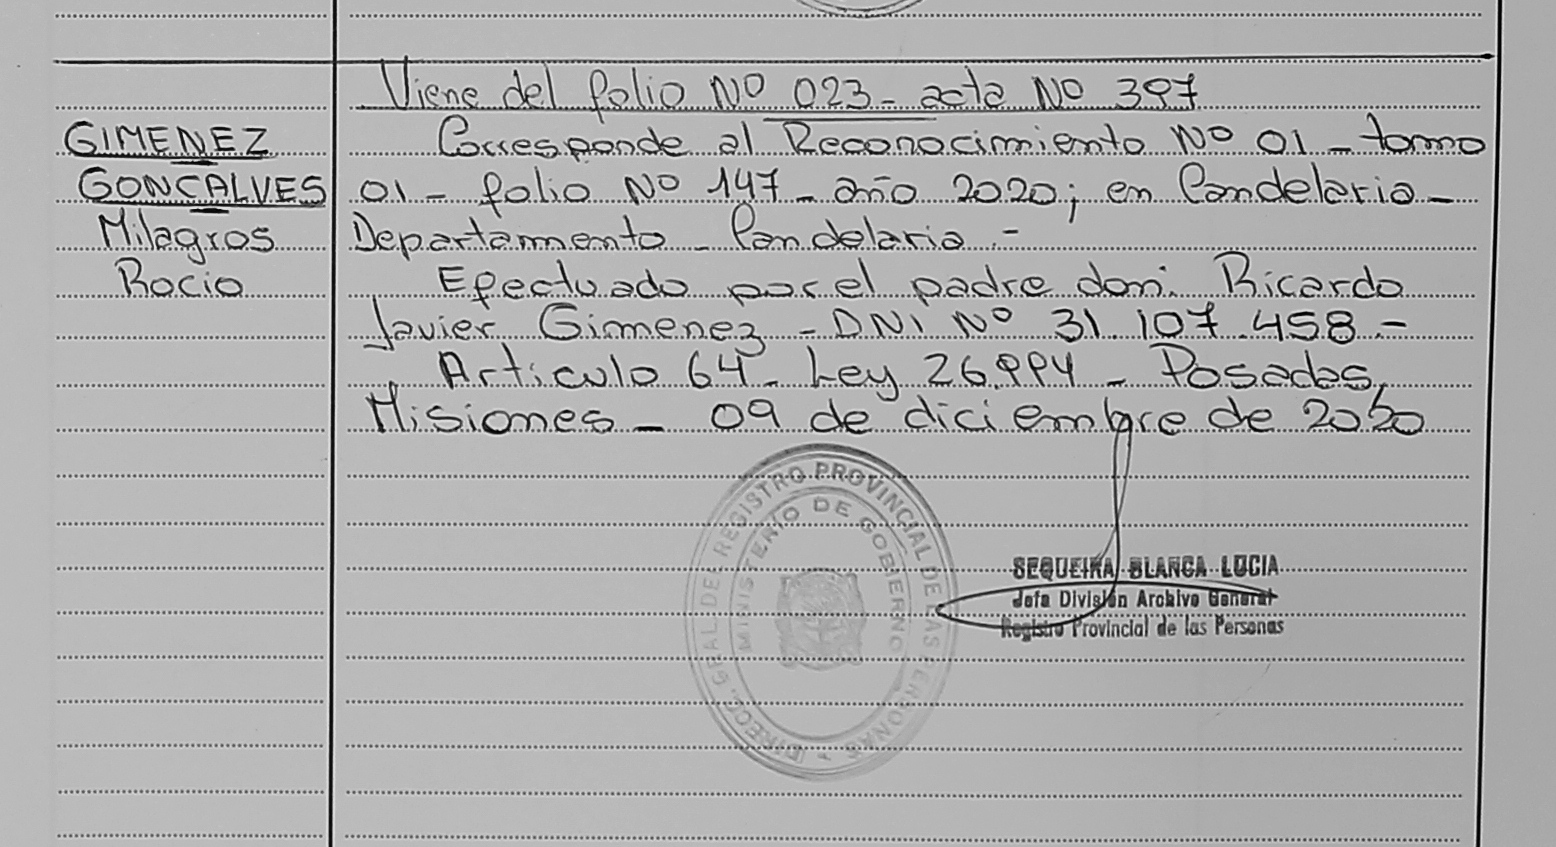 Viene del folio Nº 023 - acta Nº 397
GIMENEZ
GONCALVES
Milagros
Rocio
Corresponde al Reconocimiento Nº 01 - tomo
01 - folio Nº 147 - año 2020; en Candelaria -
Departamento - Candelaria.-
Efectuado por el padre don: Ricardo
Javier Gimenez - DNI Nº 31.107.458 -
Articulo 64 - Ley 26.994 - Posadas,
Misiones - 09 de diciembre de 2020
DIRECC. GRAL. DEL REGISTRO PROVINCIAL DE LAS PERSONAS
MINISTERIO DE GOBIERNO
SEQUEIRA BLANCA LUCIA
Jefa División Archivo General
Registro Provincial de las Personas